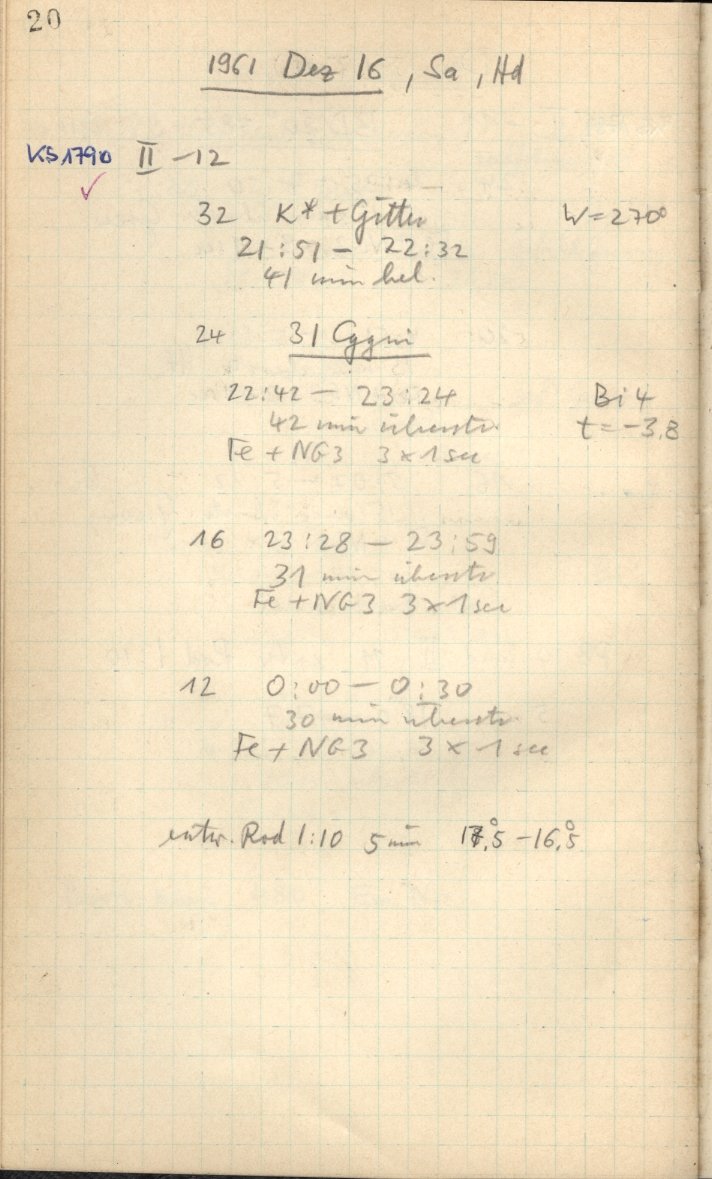 20
1961 Dez 16, Sa, Hd
KS1790 II -12
32 K* + Gitter W=270°
21:51 - 22:32
41 min bel.
24 31 Cygni
22:42 - 23:24 Bi 4
42 min überstr. t=-3,8
Fe + NG3 3x1 sec
16 23:28 - 23:59
31 min überstr.
Fe + NG3 3x1 sec
12 0:00 - 0:30
30 min überstr.
Fe + NG3 3x1 sec
entw. Rod 1:10 5 min 17°,5 - 16°,5